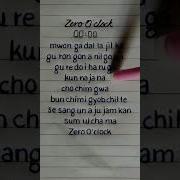 Zero O'clock
00:00
mwon ga dal la jil kk
gu ron gon a nil go ya
gu re do i ha ru ga
kun na ja na
cho chim gwa
bun chimi gyobchil te
se sang un a ju jam kan
sum ul cha ma
Zero O'clock